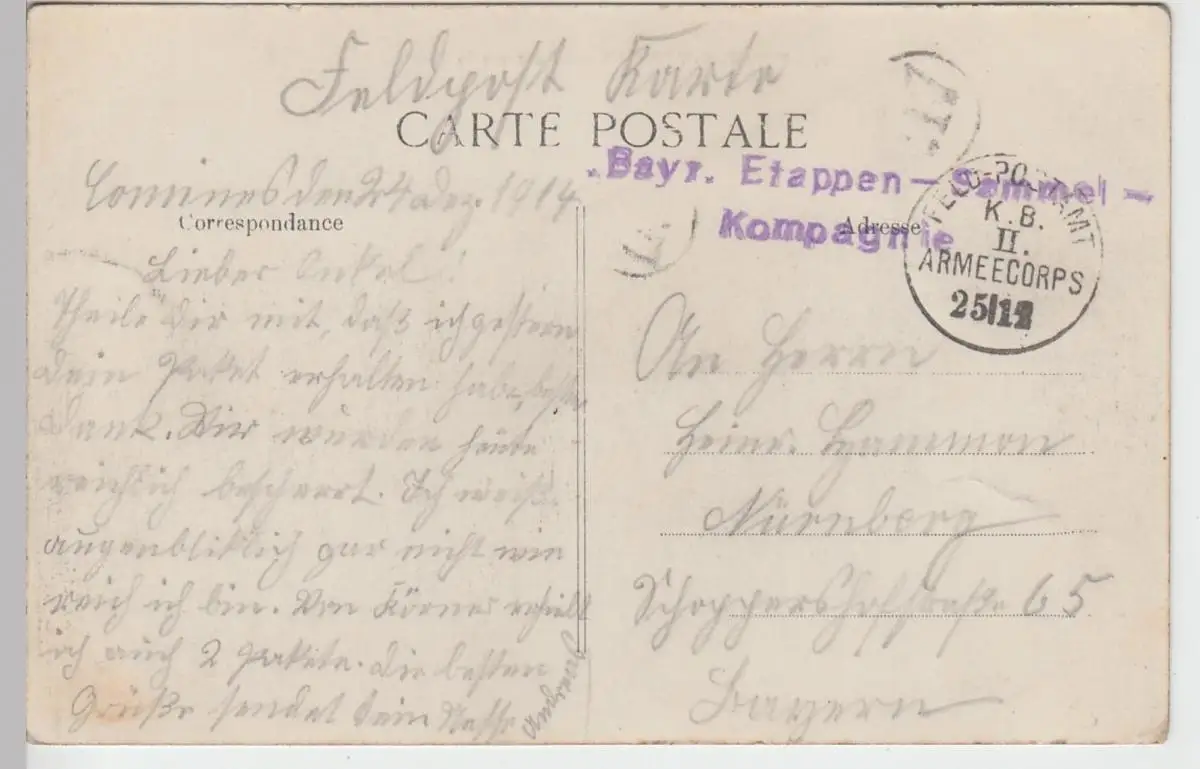 Feldpost Karte
CARTE POSTALE
Bayr. Etappen-Sammel-
Kompagnie
FELD-POSTAMT
K.B.
II.
ARMEECORPS
25|12
Comines den 24 Dez. 1914
Correspondance
Adresse
Lieber Onkel!
Theile Dir mit, daß ich gestern
Dein Paket erhalten habe, besten
Dank. Wir wurden heute
reichlich beschert. Ich weiß
augenbliklich gar nicht wie
reich ich bin. Von Körner erhielt
ich auch 2 Pakete. Die besten
Grüße sendet Dein Neffe
Andreas
An Herrn
Heinr. Hammon
Nürnberg
Schoppershofstraße 65
Bayern